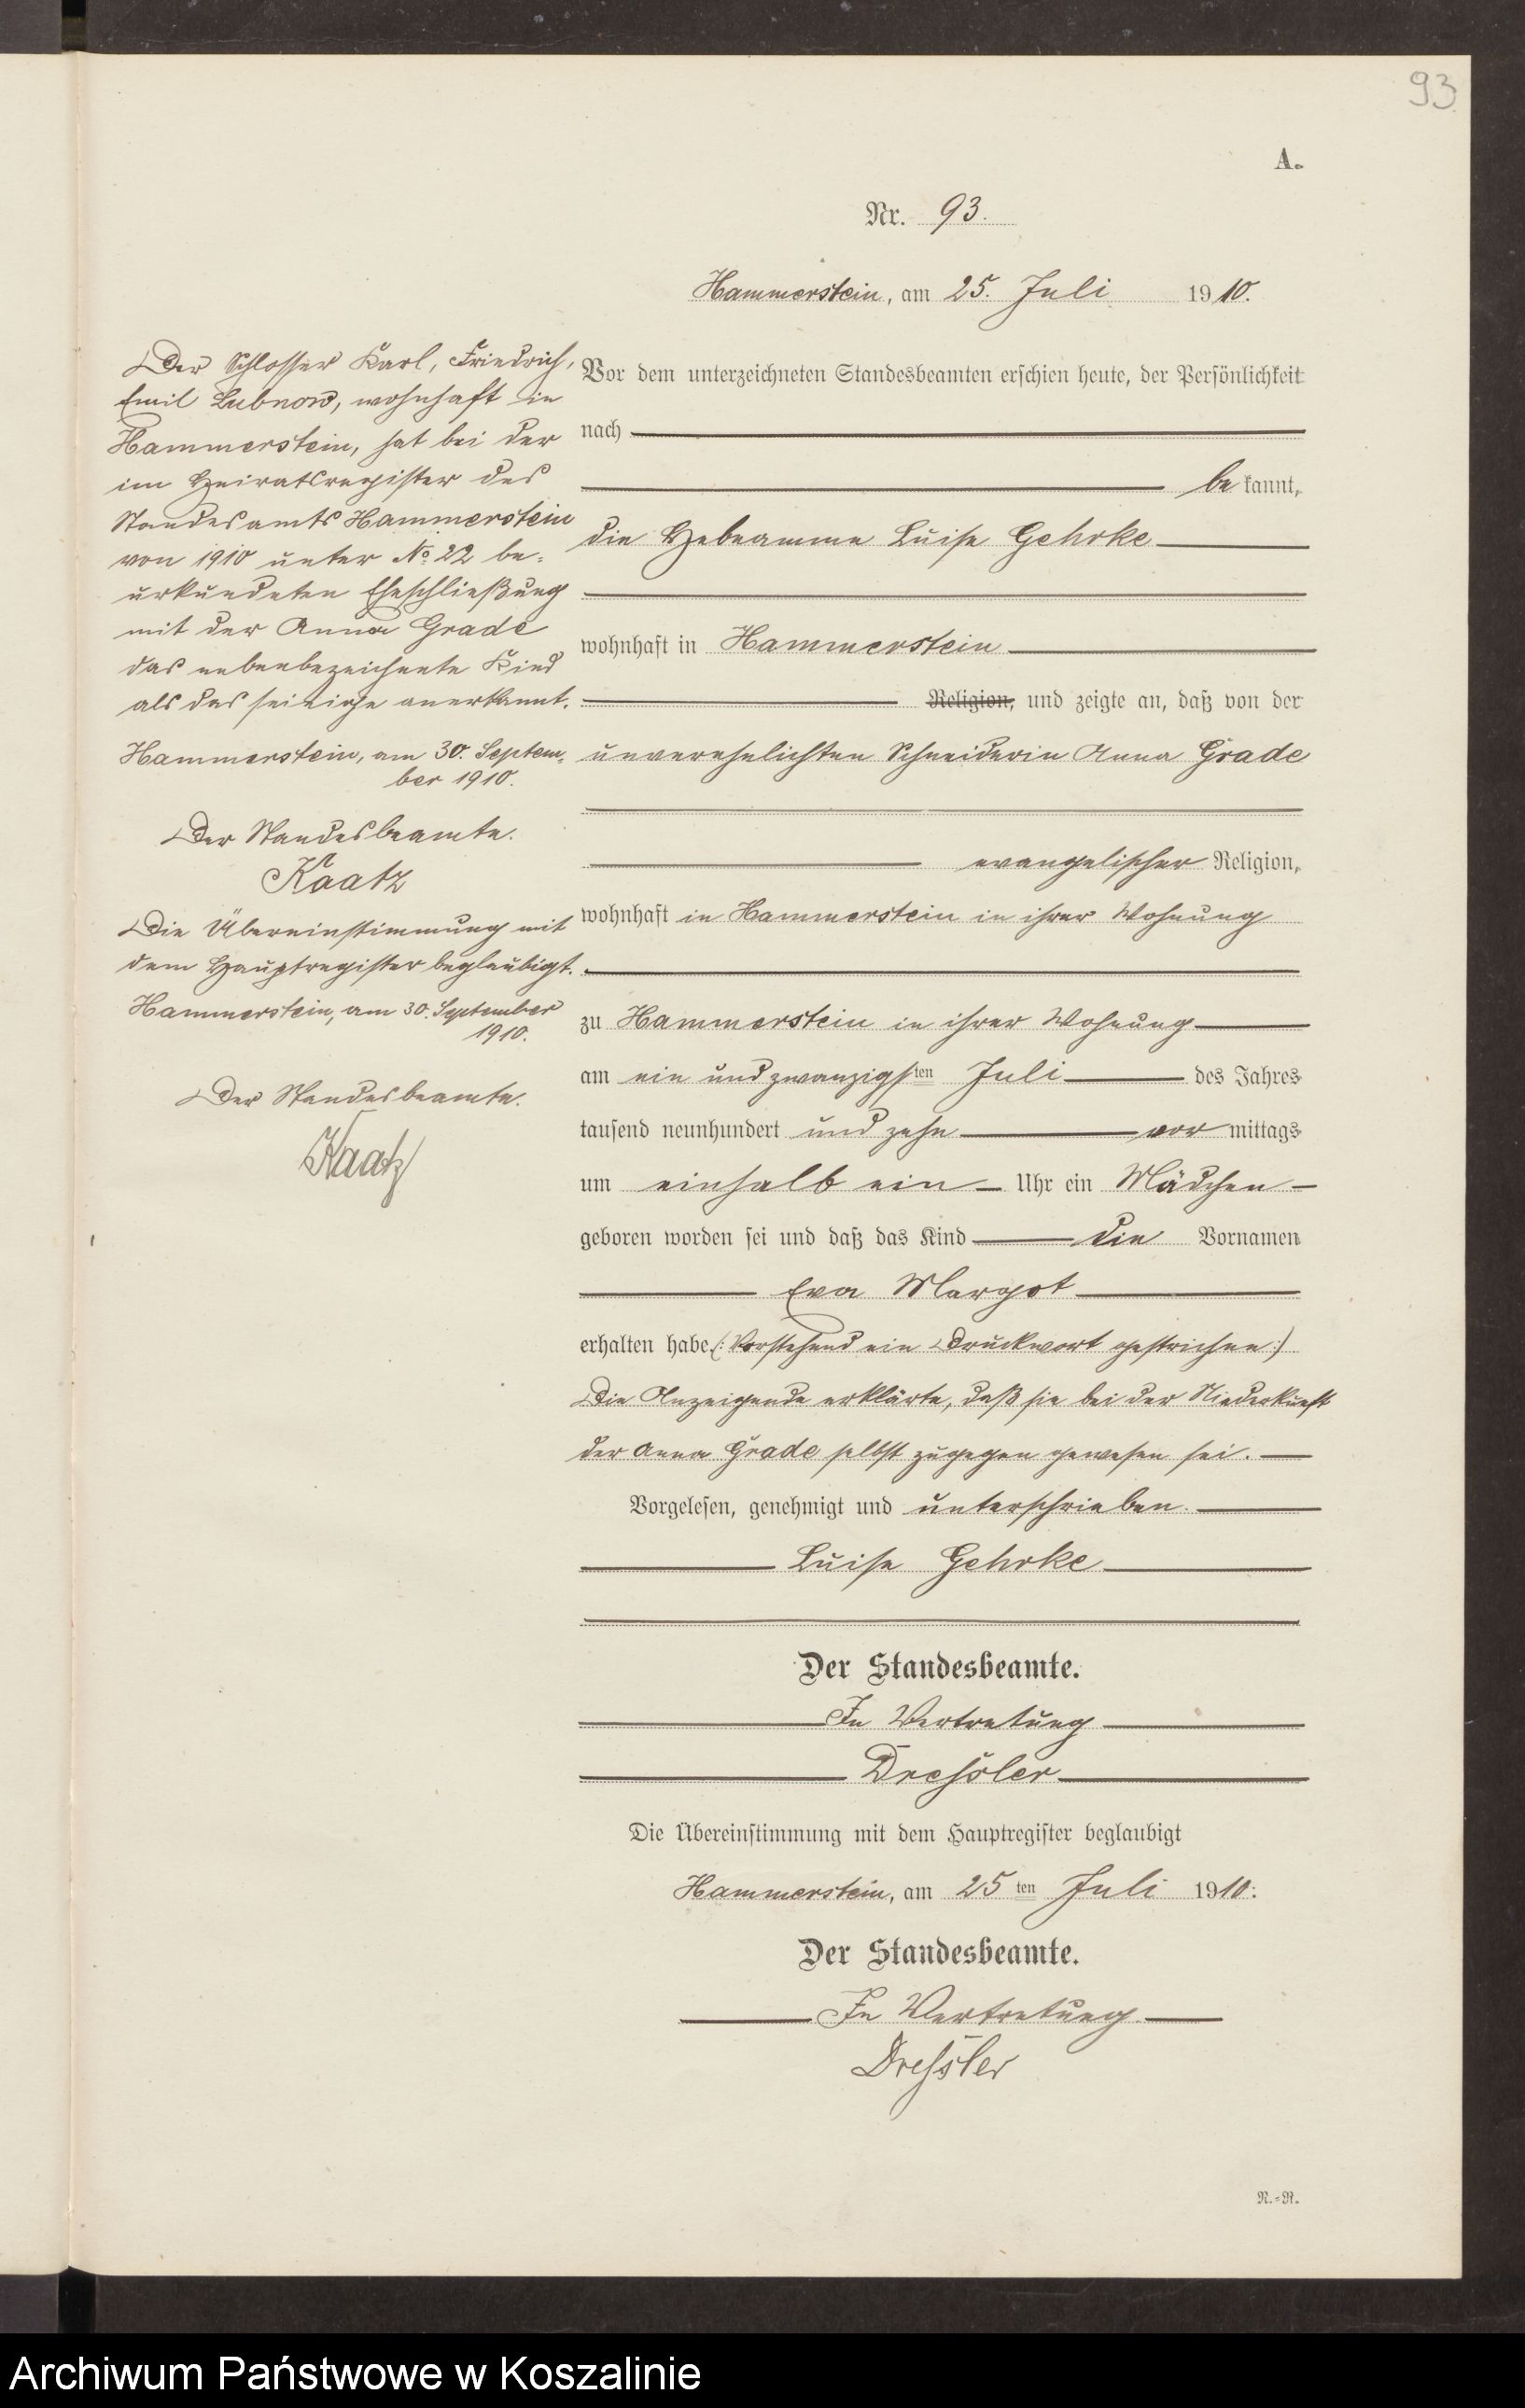 93
A.
Nr. 93.
Hammerstein, am 25. Juli 1910.
Der Schlosser Karl, Friedrich,
Emil Lubnow, wohnhaft in
Hammerstein, hat bei der
im Heiratsregister des
Standesamts Hammerstein
von 1910 unter No 22 be-
urkundeten Eheschließung
mit der Anna Grade
das nebenbezeichnete Kind
als das seinige anerkannt.
Hammerstein, am 30. Septem-
ber 1910.
Der Standesbeamte.
Kaatz
Die Übereinstimmung mit
dem Hauptregister beglaubigt.
Hammerstein, am 30. September
1910.
Der Standesbeamte.
Kaatz
Vor dem unterzeichneten Standesbeamten erschien heute, der Persönlichkeit
nach
be kannt,
die Hebeamme Luise Gehrke
wohnhaft in Hammerstein
Religion, und zeigte an, daß von der
unverehelichten Schneiderin Anna Grade
evangelischer Religion,
wohnhaft in Hammerstein in ihrer Wohnung
zu Hammerstein in ihrer Wohnung
am ein und zwanzigsten Juli des Jahres
tausend neunhundert und zehn vor mittags
um einhalb ein Uhr ein Mädchen
geboren worden sei und daß das Kind die Vornamen
Eva Margot
erhalten habe. (: Vorstehend ein Druckwort gestrichen :)
Die Anzeigende erklärte, daß sie bei der Niederkunft
der Anna Grade selbst zugegen gewesen sei.
Vorgelesen, genehmigt und unterschrieben.
Luise Gehrke
Der Standesbeamte.
In Vertretung
Dressler
Die Übereinstimmung mit dem Hauptregister beglaubigt
Hammerstein, am 25 ten Juli 1910.
Der Standesbeamte.
In Vertretung.
Dressler
N.=R.
Archiwum Państwowe w Koszalinie